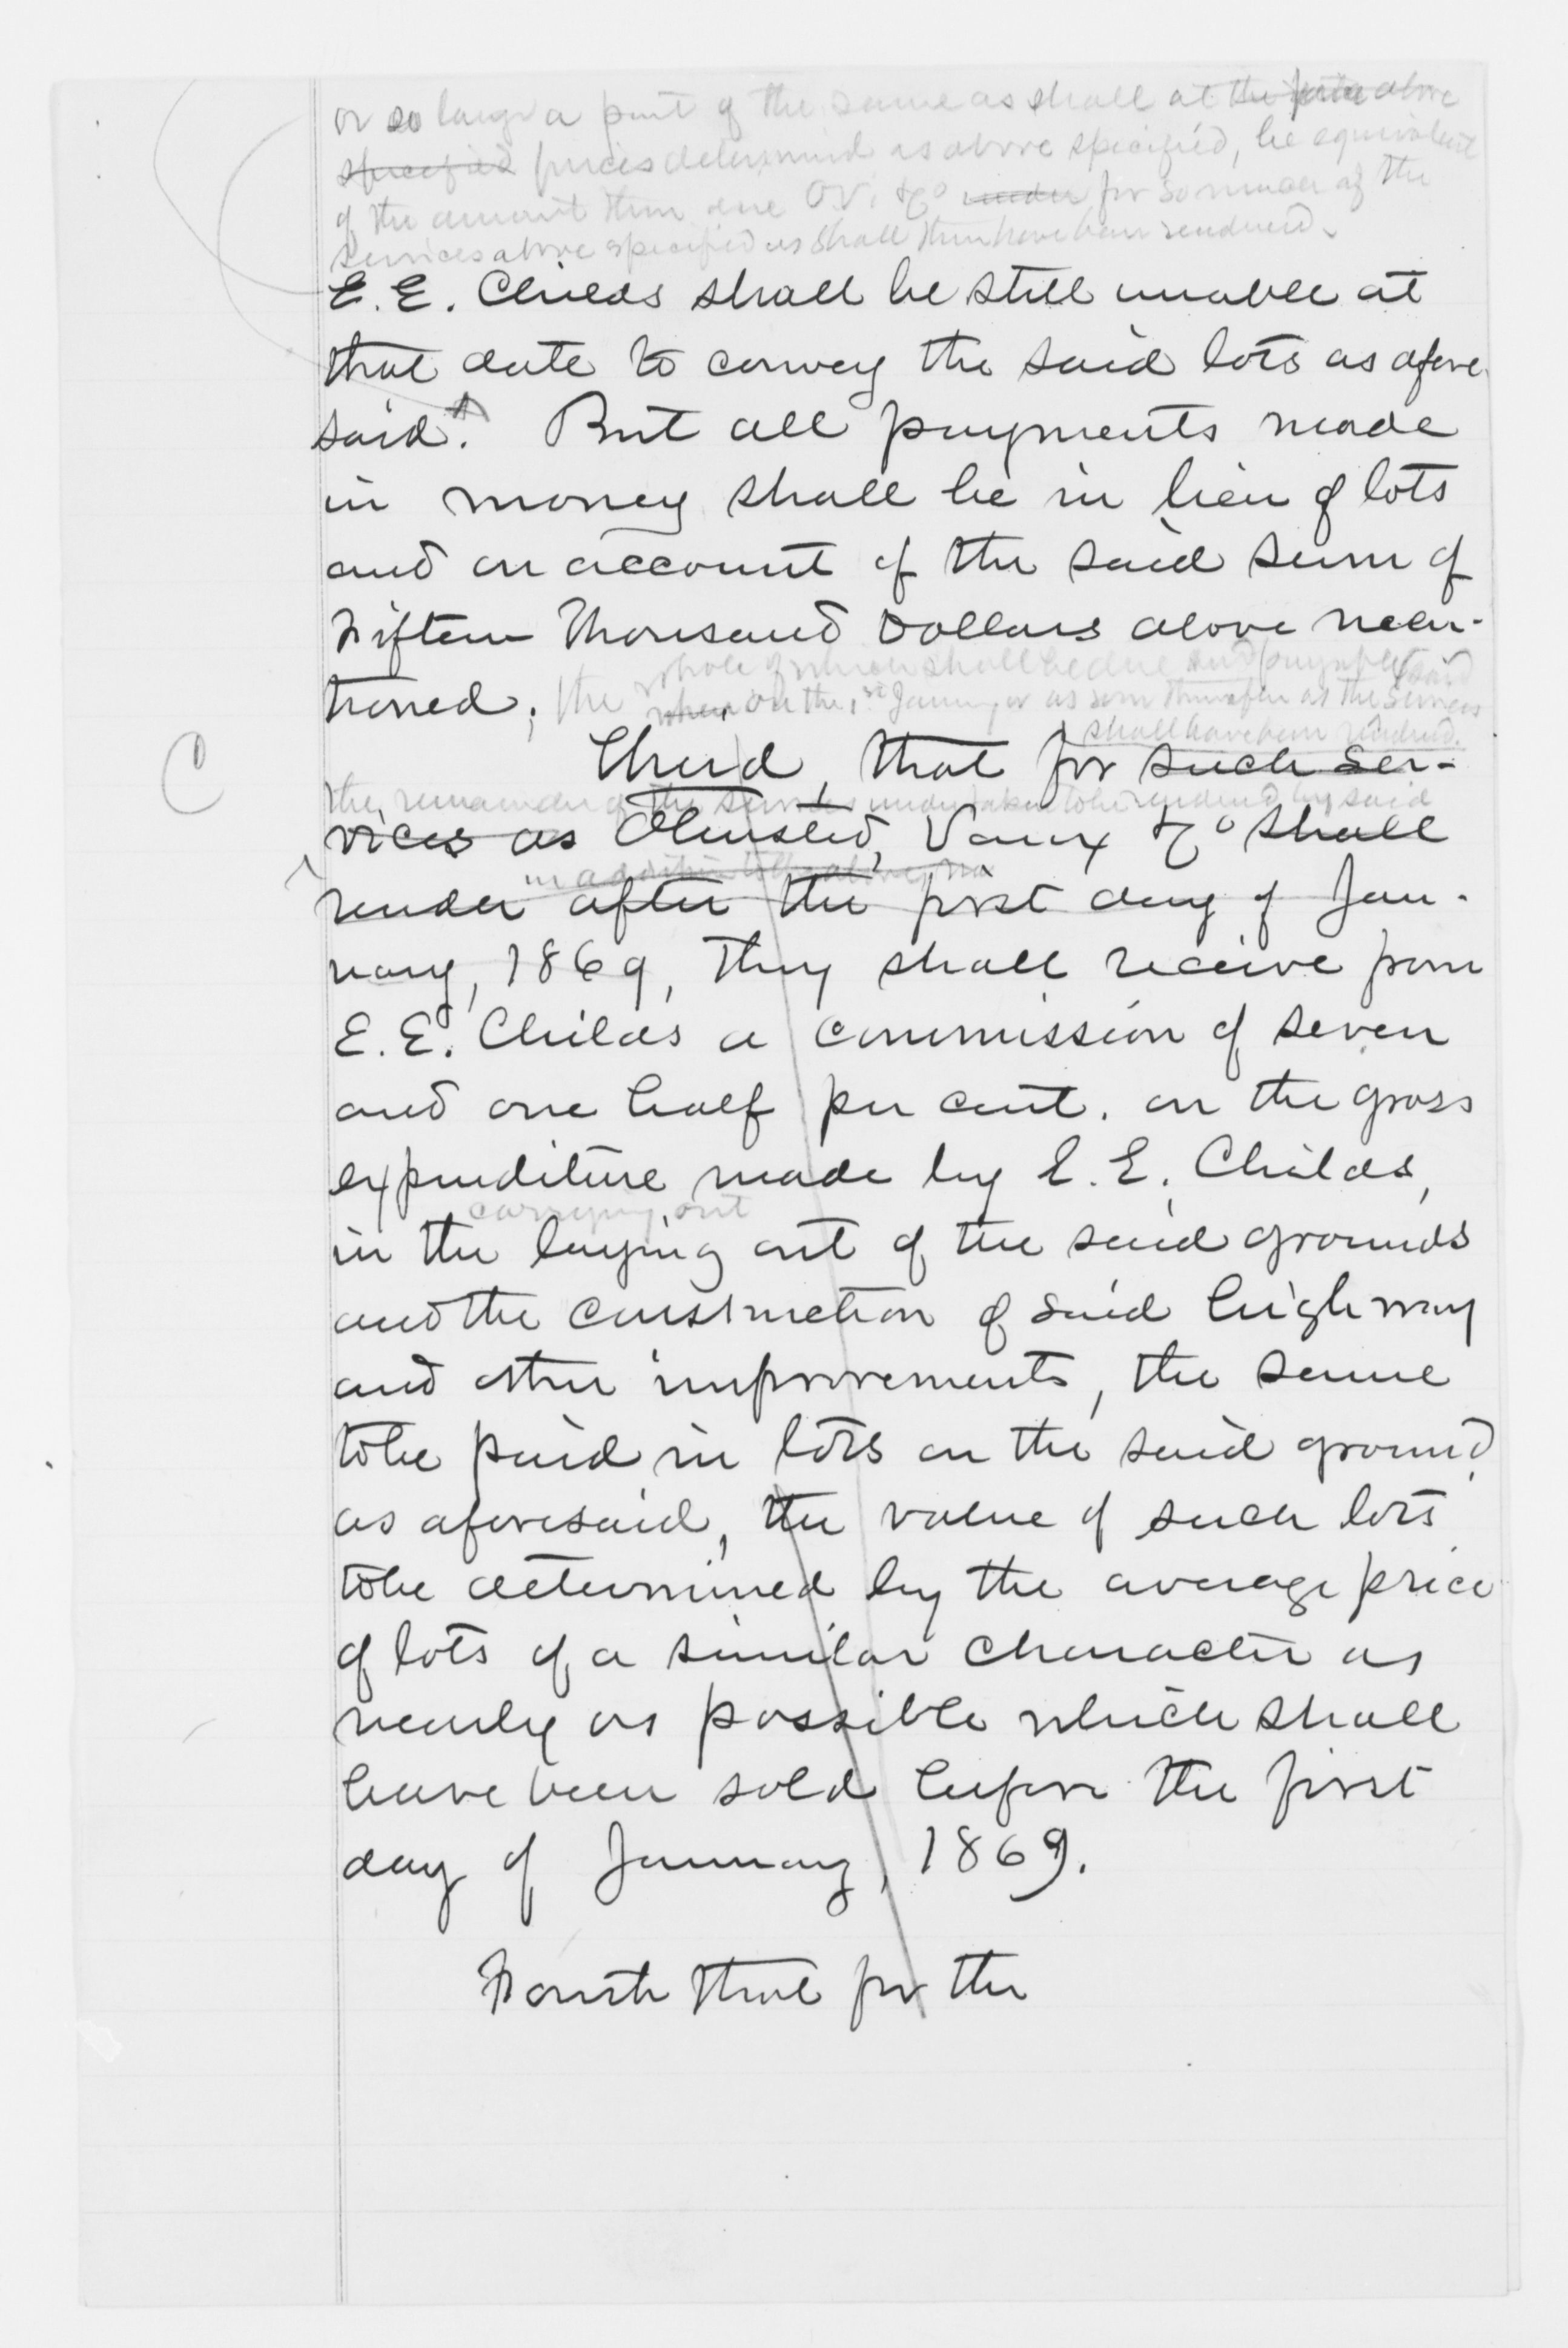 or so large a part of the same as shall at the price above
specified prices determined as above specified, be equivalent
of the amount then due O.V. & Co under for so much of the
services above specified as shall then have been rendered.
E. E. Childs shall be still unable at
that date to convey the said lots as afore
said. But all payments made
in money shall be in lieu of lots
and on account of the said sum of
Fifteen Thousand Dollars above men-
whole of which shall be due and payable
tioned; the when on the 1st January or as soon thereafter as the said services
shall have been rendered.
C
Third, that for such ser-
the remainder of the services undertaken to be rendered by said
vices as Olmsted, Vaux & Co shall
in addition to the above
render after the first day of Jan-
uary, 1869, they shall receive from
E. E. Childs a commission of seven
and one half per cent. on the gross
expenditure made by E. E. Childs,
carrying out
in the laying out of the said grounds
and the construction of said highway
and other improvements, the same
to be paid in lots on the said ground
as aforesaid, the value of such lots
to be determined by the average price
of lots of a similar character as
nearly as possible which shall
have been sold before the first
day of January, 1869.
Fourth that for the